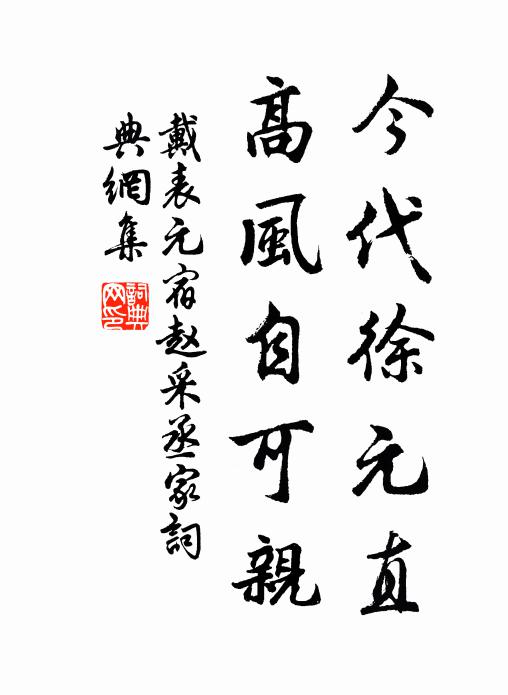 今代徐元直
高風自可親
戴表元宿赵采丞家詞
典網集
詞典網印